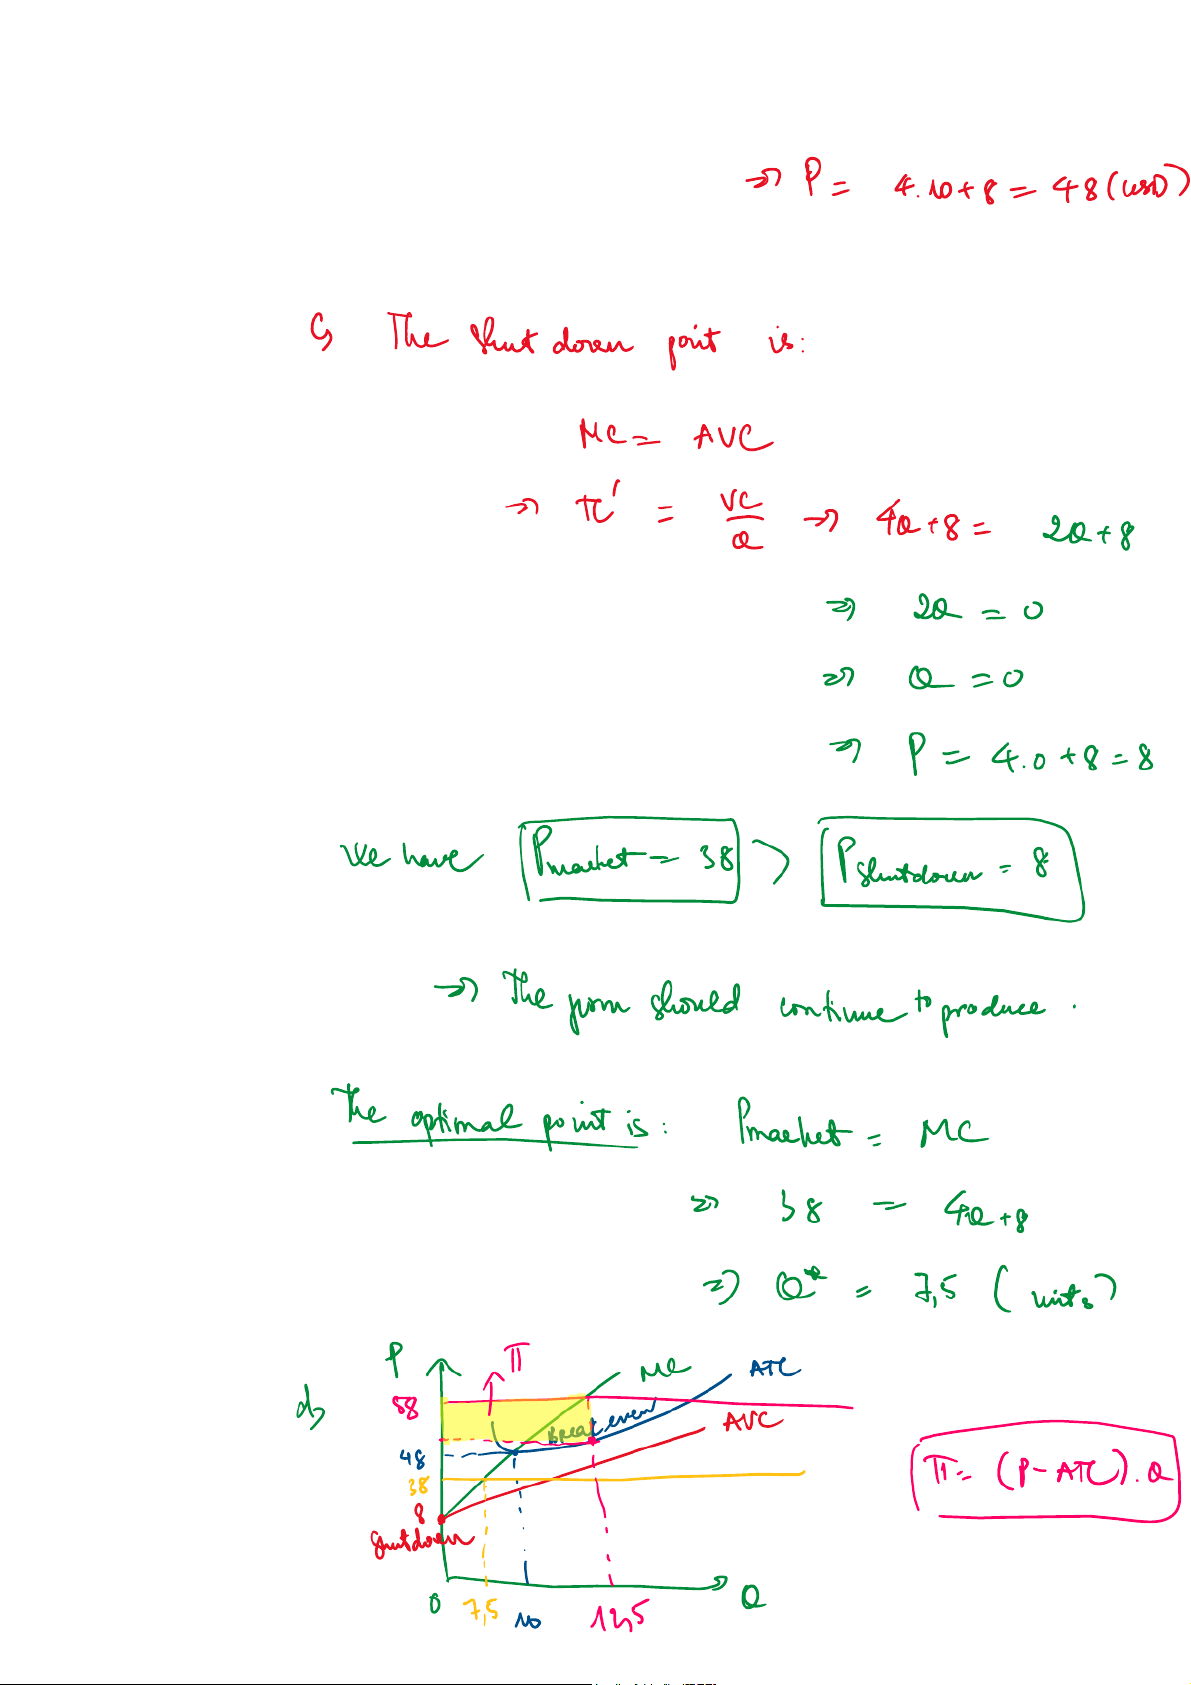 => P = 4.10+8 = 48 (USD)
c, The shut down point is:
MC = AVC
=> TC' = VC/Q => 4Q+8 = 2Q+8
=> 2Q = 0
=> Q = 0
=> P = 4.0+8=8
We have Pmarket = 38 > Pshutdown = 8
=> The firm should continue to produce.
The optimal point is: Pmarket = MC
=> 38 = 4Q+8
=> Q* = 7,5 (units)
d,
P
π
MC
ATC
58
Break even
AVC
48
38
8
shutdown
π = (P-ATC).Q
0
7,5
10
12,5
Q